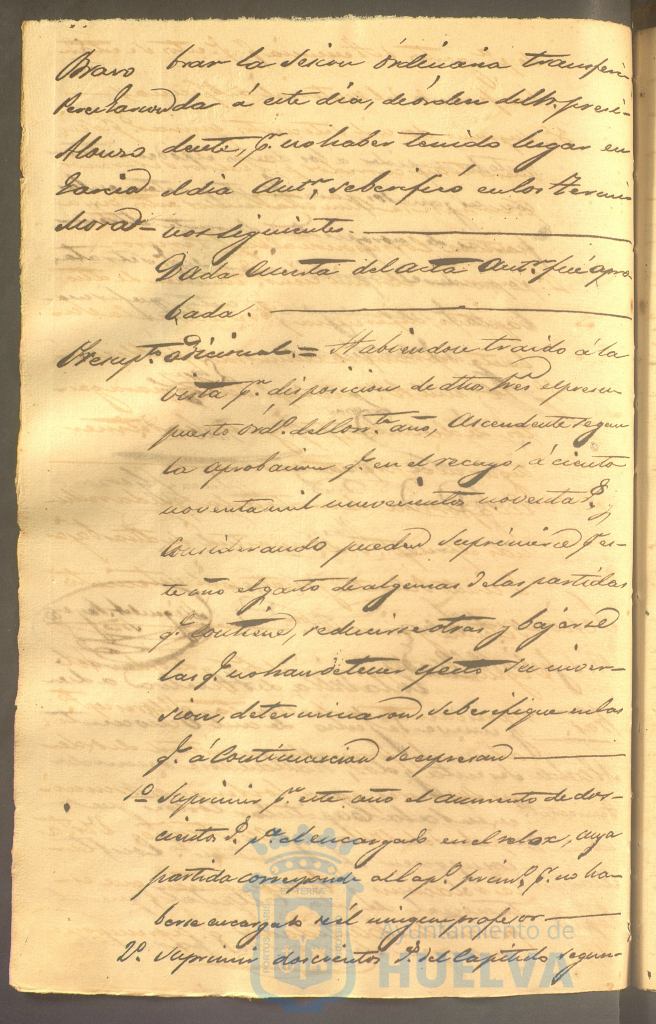 Bravo brar la sesion órdinaria transferi
Perez Garcia da á este dia, de órden del Sr. presi-
Alonzo dente, p.r no haber tenido lugar en
Garcia el dia Antr., se berificó en los termi
Morad= nos siguientes.
Dada Cuenta del acta Antr. fue apro
bada.
Presup.to adicional.= Habiendose traido á la
vista p.r disposicion de dhos Sres el presu
puesto órd.o del corr.te año, Ascendente segun
la aprobacion q.e en el recayó, á ciento
noventa mil nuevecientos noventa r.s y
Considerando pueden suprimirse p.r es-
te año el gasto de algunas de las partidas
q.e contiene, reducirse otras y bajarse
las q.e no han de tener efecto su inver-
sion, determinaron, se berifique en las
q.e á Continuacion se espresan
1.o Suprimir p.r este año el aumento de dos-
cientos r.s p.a el encargado en el relox, cuya
partida corresponde al Cap.o prim.o, p.r no ha-
berse encargado de él ningun profesor
2.o Suprimir doscientos r.s del Capitulo segun-
Ayuntamiento de
HUELVA